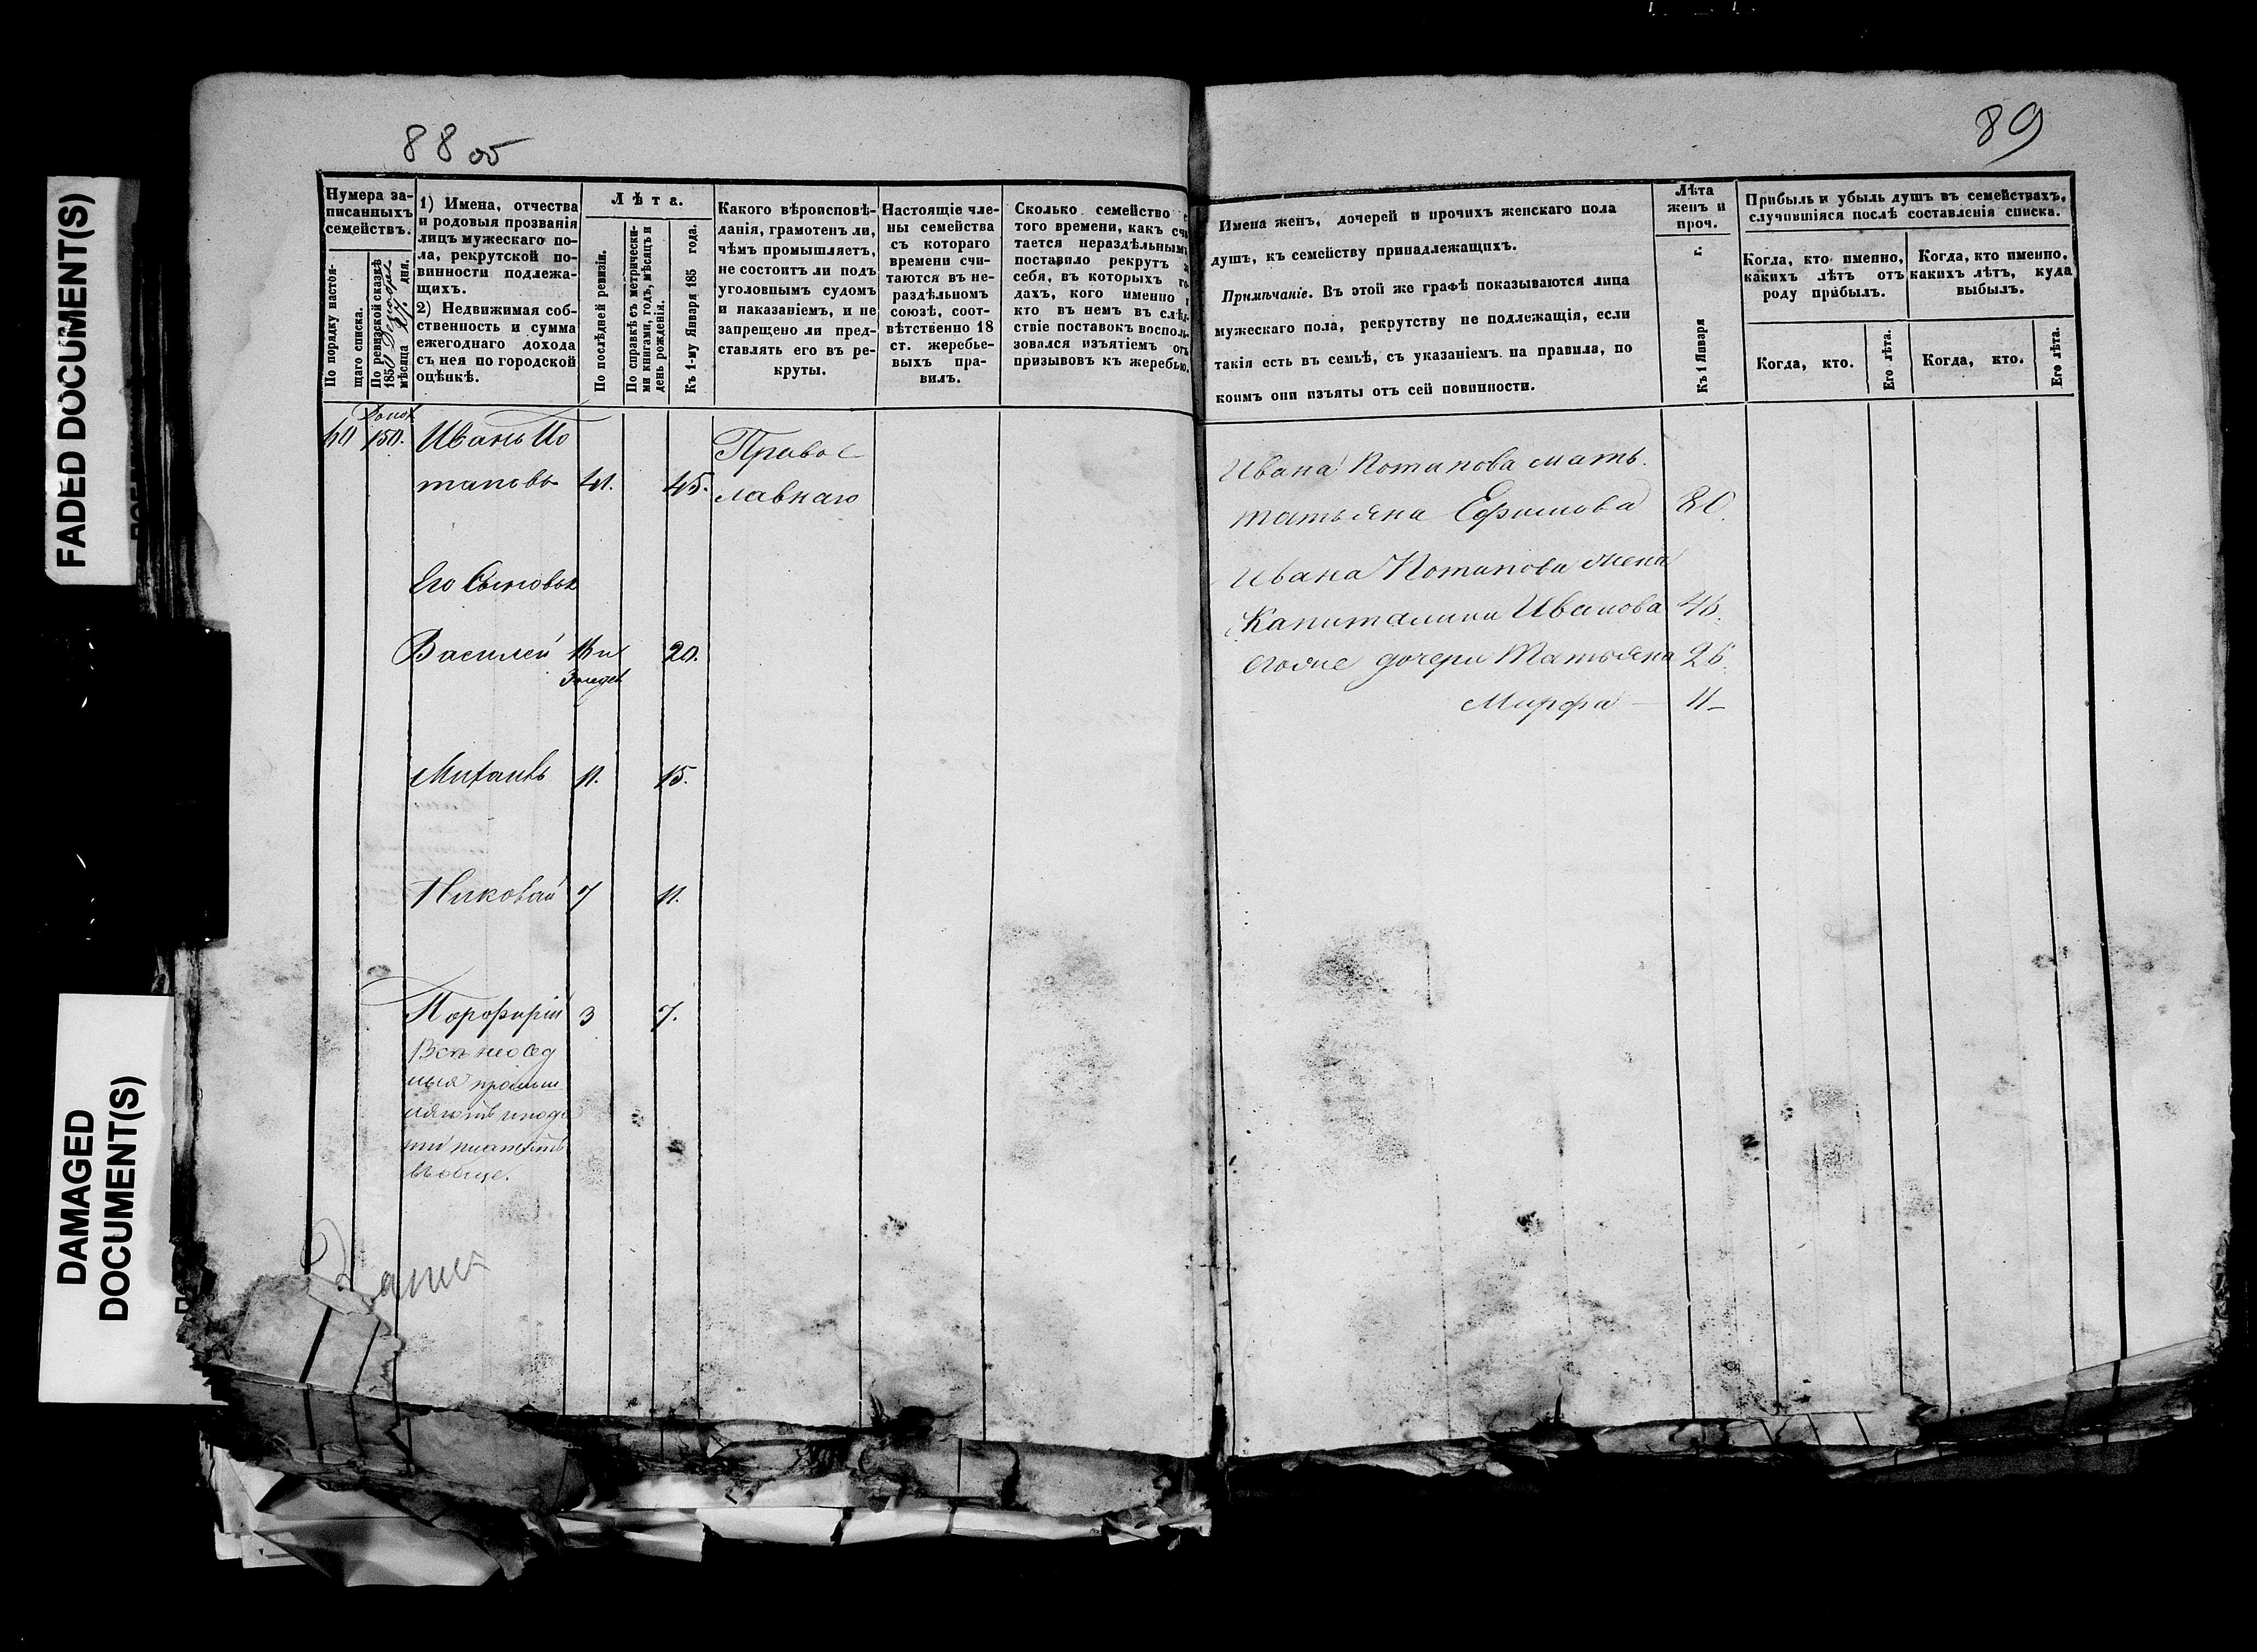 FADED DOCUMENT(S)
DAMAGED
DOCUMENT(S)
88 об
Нумера за-
писанныхъ
семействъ.
По порядку настоя-
щаго списка.
По ревизской сказкѣ
185
мѣсяца 27. дня.
1) Имена, отчества
и родовыя прозванія
лицъ мужескаго по-
ла, рекрутской по-
винности подлежа-
щихъ.
2) Недвижимая соб-
ственность и сумма
ежегоднаго дохода
съ нея по городской
оцѣнкѣ.
Лѣта.
По послѣдней ревизіи.
По справкѣ съ метрически-
ми книгами, годъ, мѣсяцъ и
день рожденія.
Къ 1-му Января 185 года.
Какого вѣроисповѣ-
данія, грамотенъ ли,
чѣмъ промышляетъ,
не состоитъ ли подъ
уголовнымъ судомъ
и наказаніемъ, и не
запрещено ли пред-
ставлять его въ ре-
круты.
Настоящіе чле-
ны семейства
съ котораго
времени счи-
таются въ не-
раздѣльномъ
союзѣ, соот-
вѣтственно 18
ст. жеребье-
выхъ пра-
вилъ.
Сколько семейство с
того времени, какъ счи
тается нераздѣльнымъ
поставило рекрутъ з
себя, въ которыхъ го-
дахъ, кого именно и
кто въ немъ въ слѣд-
ствіе поставокъ восполь-
зовался изъятіемъ отъ
призывовъ къ жеребью.
60 150. Иванъ По
таповъ 41. 45.
Правос
лавнаго
Его Сыновья
Василей 16 и 20.
Михаилъ 11. 15.
Николай 7 11.
Порфирій 3 7.
89
Имена женъ, дочерей и прочихъ женскаго пола
душъ, къ семейству принадлежащихъ.
Примѣчаніе. Въ этой же графѣ показываются лица
мужескаго пола, рекрутству не подлежащія, если
такія есть въ семьѣ, съ указаніемъ на правила, по
коимъ они изъяты отъ сей повинности.
Лѣта
женъ и
проч.
Къ 1 Января г.
Прибыль и убыль душъ въ семействахъ,
случившіяся послѣ составленія списка.
Когда, кто именно,
какихъ лѣтъ отъ
роду прибылъ.
Когда, кто именно,
какихъ лѣтъ, куда
выбылъ.
Когда, кто.
Его лѣта.
Когда, кто.
Его лѣта.
Ивана Потапова мать
Татьяна Ефимова 80.
Ивана Потапова жена
Капиталина Иванова 46.
дочери Татьяна 26.
Марфа 11